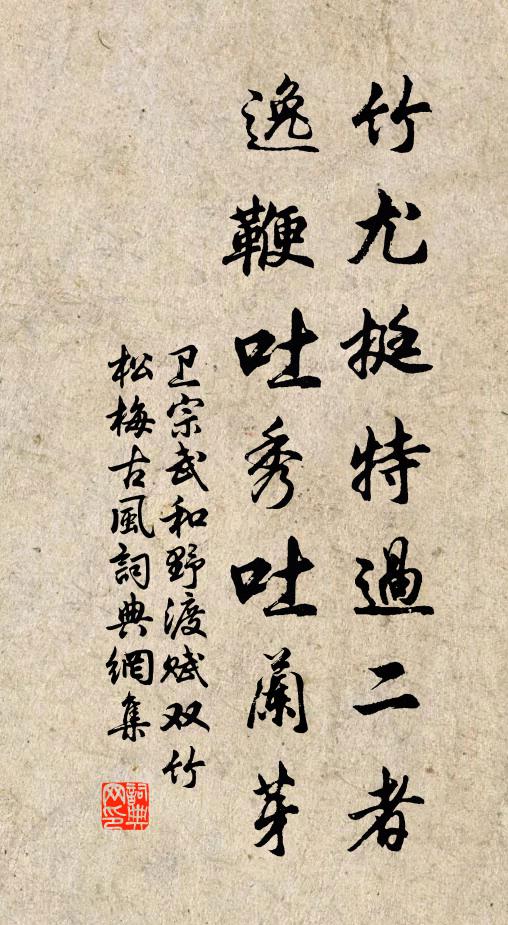 竹尤挺特過二者
逸鞭吐秀吐蘭芽
卫宗武和野渡赋双竹
松梅古風詞典網集
詞典
网印